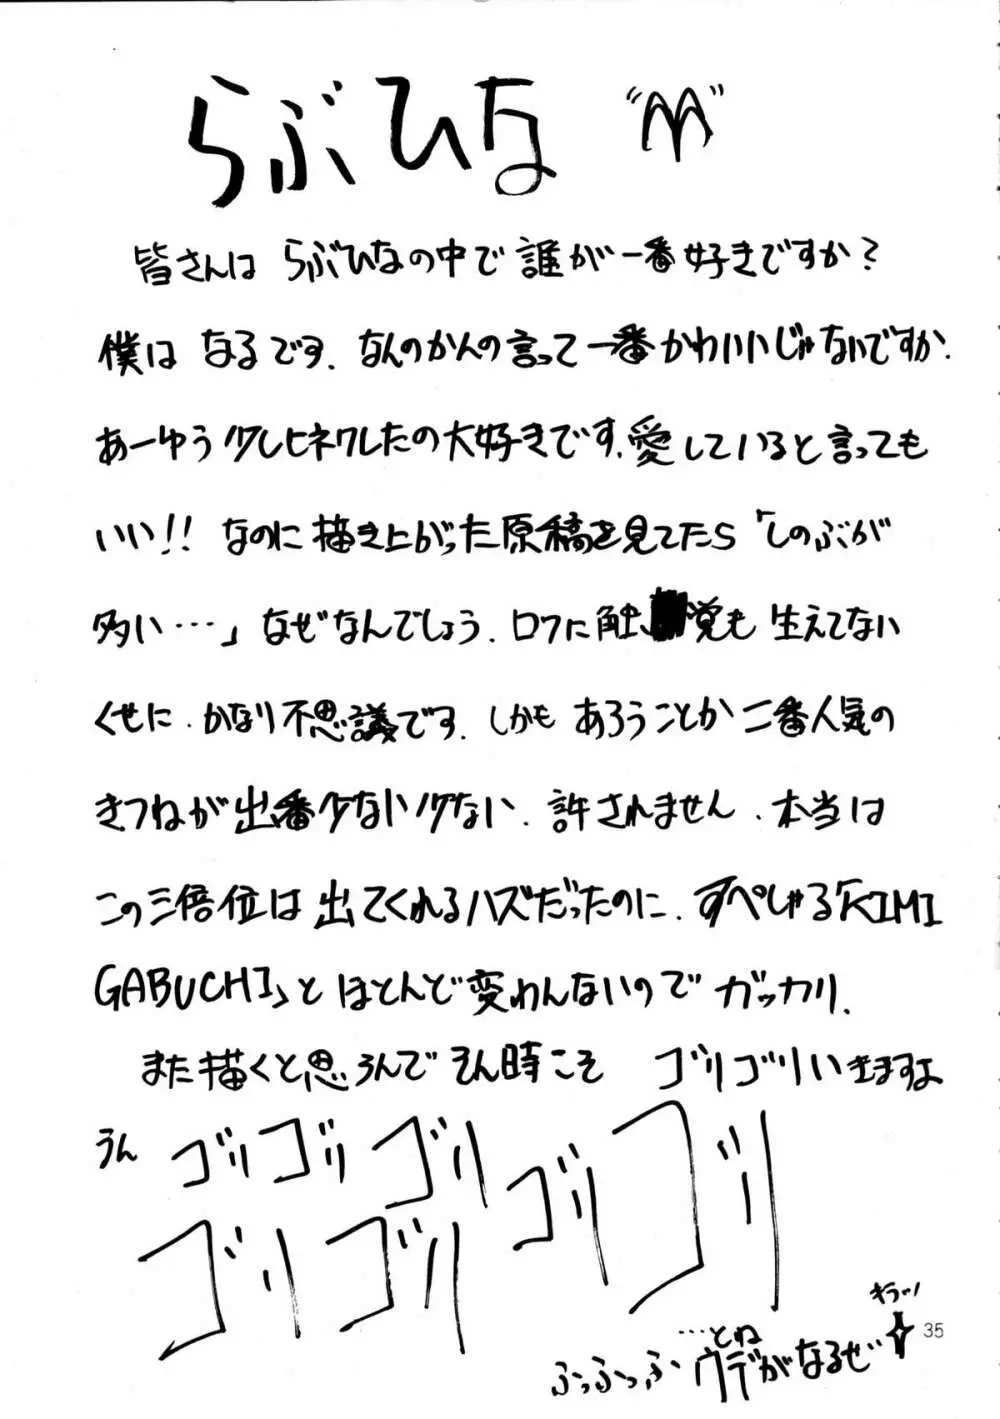 らぶひな
皆さんは らぶひなの中で 誰が一番好きですか?
僕は なるです. なんのかんの言って一番かわいいじゃないですか.
あーゆう少しヒネクレたの大好きです. 愛していると言っても
いい!! なのに描き上がった原稿を見てたら「しのぶが
多い…」なぜなんでしょう. ロフに触 覚も 生えてない
くせに. かなり不思議です. しかも あろうことか 二番人気の
きつねが出番少ない少ない. 許されません. 本当は
この三倍位は出てくれるハズだったのに. すぺしゃる「KIMI
GABUCHI」と ほとんど変わんないので ガッカリ.
また描くと思うんで そん時こそ ゴリゴリいきますよ
うん ゴリ ゴリ ゴリ ゴリ ゴリ
ゴリ ゴリ
キラッ
…とね
ふっふっふ ウデがなるぜ
35